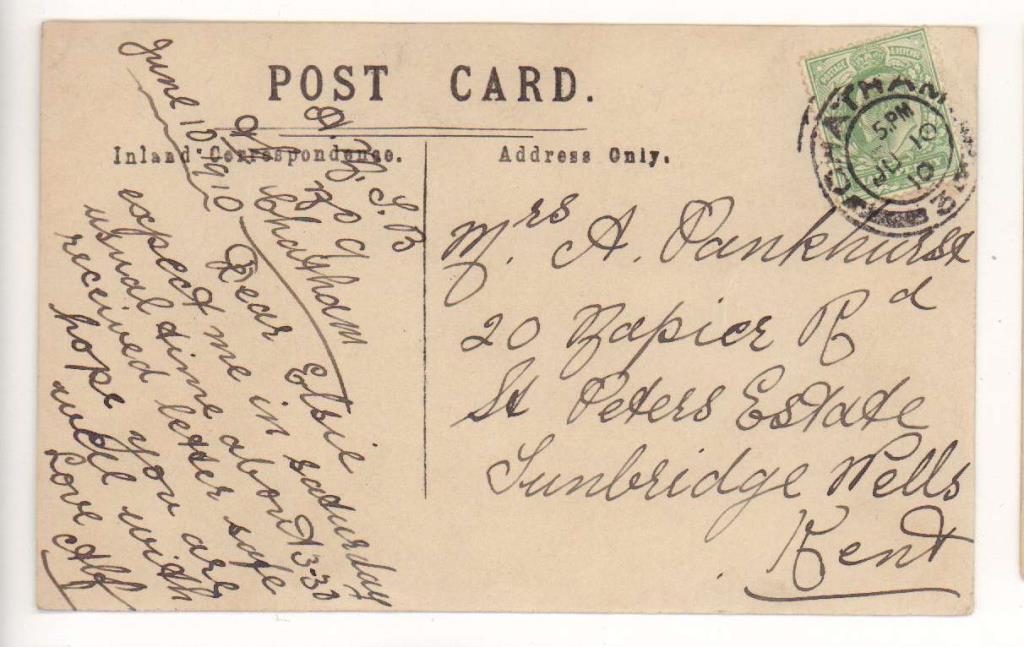 POST CARD.
Inland Correspondence.
Address Only.
CHATHAM
5. PM
JU 10
10
June 10/1910
S. B
Chatham
Dear Elsie
expect me in saturday
usual time about 3-30
received letter safe
hope you are
well with
Love Alf
Mrs. A. Pankhurst
20 Rapier Rd
St Peters Estate
Tunbridge Wells
Kent